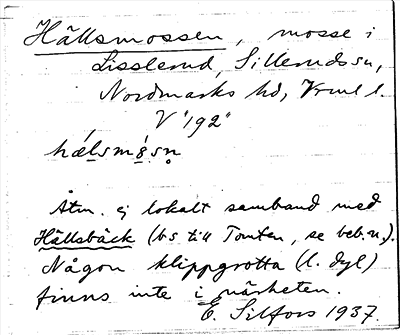 Hällsmossen, mosse i
Lisslerud, Sillerudssn,
Nordmarks hd, Vrml l.
V "192"
hǽlsmǫ́sn̥
Åtm. ej lokalt samband med
Hällsbäck (bs till Tomten, se beb.n.).
Någon klippgrotta (l. dyl)
finns inte i närheten.
E. Silfors 1937.